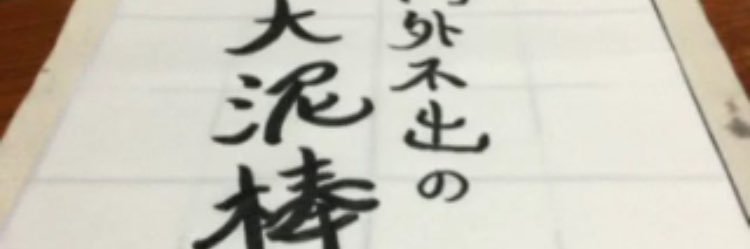 外不出の
大泥棒